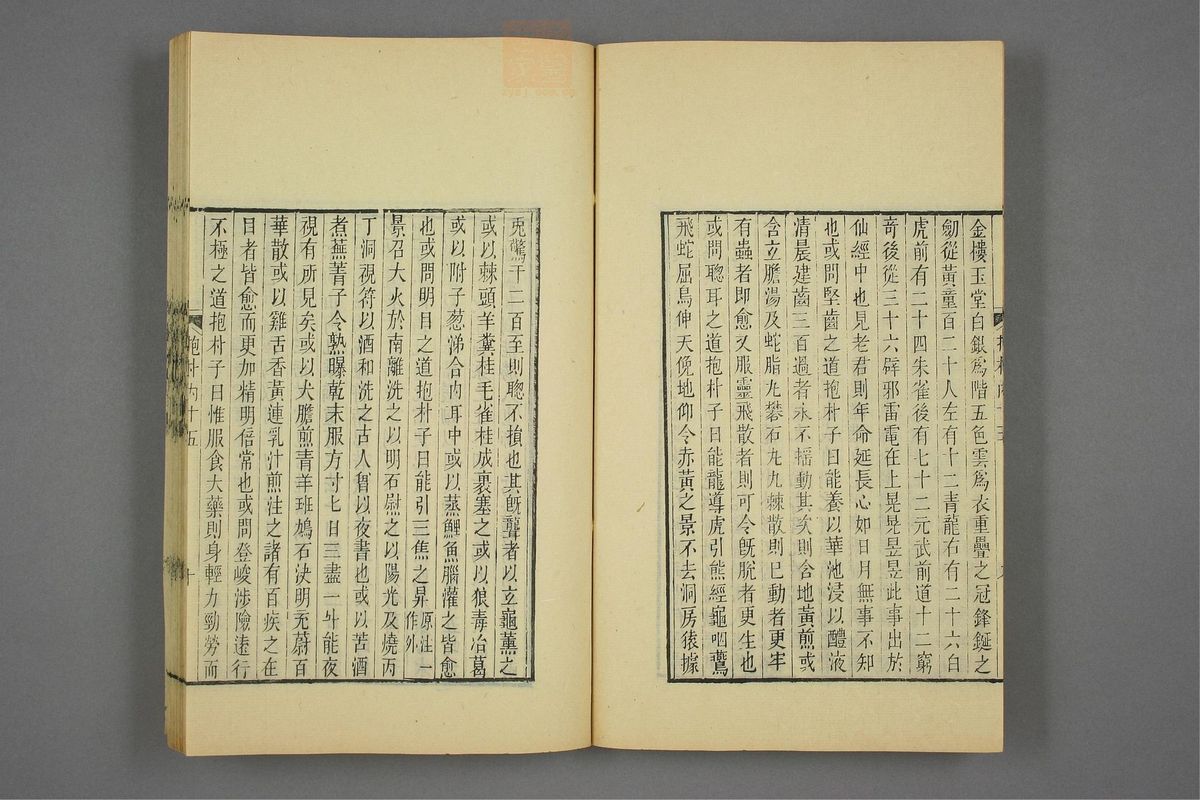 金樓玉堂白銀爲階五色雲爲衣重疊之冠鋒鋋之
劒從黃童百二十人左有十二青龍右有二十六白
虎前有二十四朱雀後有七十二元武前道十二窮
奇後從三十六辟邪雷電在上晃晃昱昱此事出於
仙經中也見老君則年命延長心如日月無事不知
也或問堅齒之道抱朴子曰能養以華池浸以醴液
清晨建齒三百過者永不搖動其矣則含地黃煎或
含立膽湯及蛇脂丸礬石丸九棘散則巳動者更牢
有蟲者即愈又服靈飛散者則可令旣脫者更生也
或問聰耳之道抱朴子曰能龍導虎引熊經龜咽鷰
飛蛇屈鳥伸天俛地仰令赤黃之景不去洞房猿據
兎驚千二百至則聰不損也其旣聾者以立龜薰之
或以棘頭羊糞桂毛雀桂成裹塞之或以狼毒冶葛
或以附子葱涕合內耳中或以蒸鯉魚腦灌之皆愈
也或問明目之道抱朴子曰能引三焦之昇原注一作外
景召大火於南離洗之以明石慰之以陽光及燒丙
丁洞視符以酒和洗之古人曾以夜書也或以苦酒
煮蕪菁子令熟曝乾末服方寸匕日三盡一斗能夜
視有所見矣或以犬膽煎青羊班鳩石決明充蔚百
華散或以雞舌香黃連乳汁煎注之諸有百疾之在
目者皆愈而更加精明倍常也或問登峻涉險遠行
不極之道抱朴子曰惟服食大藥則身輕力勁勞而
抱朴內十五
十